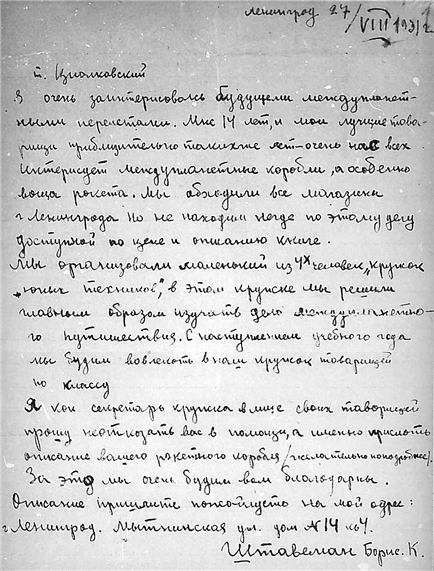 Ленинград 27/VIII 1931 г.
т. Циолковский
Я очень заинтерисовался будущеми междупланет-
ными перелетами. Мне 14 лет, и мои лучшие това-
рищи приблизительно таких же лет – очень нас всех
интерисует междупланетные корабли, а особенно
ваша ракета. Мы обходили все магазины
г. Ленинграда но не находим негде по этому делу
доступной по цене и описанию книге.
Мы организовали маленький из 4х человек, "кружок
"юных техников", в этом кружке мы решили
главным образом изучать дело междупланетно-
го путишествия. С наступлением учебного года
мы будим вовлекать в наш кружок товарищей
по классу
Я как секретарь кружка в лице своих таворищей
прошу неотказать вас в помощи, а именно прислать
описание вашего ракетного корабля /желательно поподробнее/.
За это мы очень будим вам благодарны.
Описание пришлите пожалуйсто на мой адрес:
г. Ленинград. Мытнинская ул. дом N 14 кв 4.
Штавеман Борис. К.